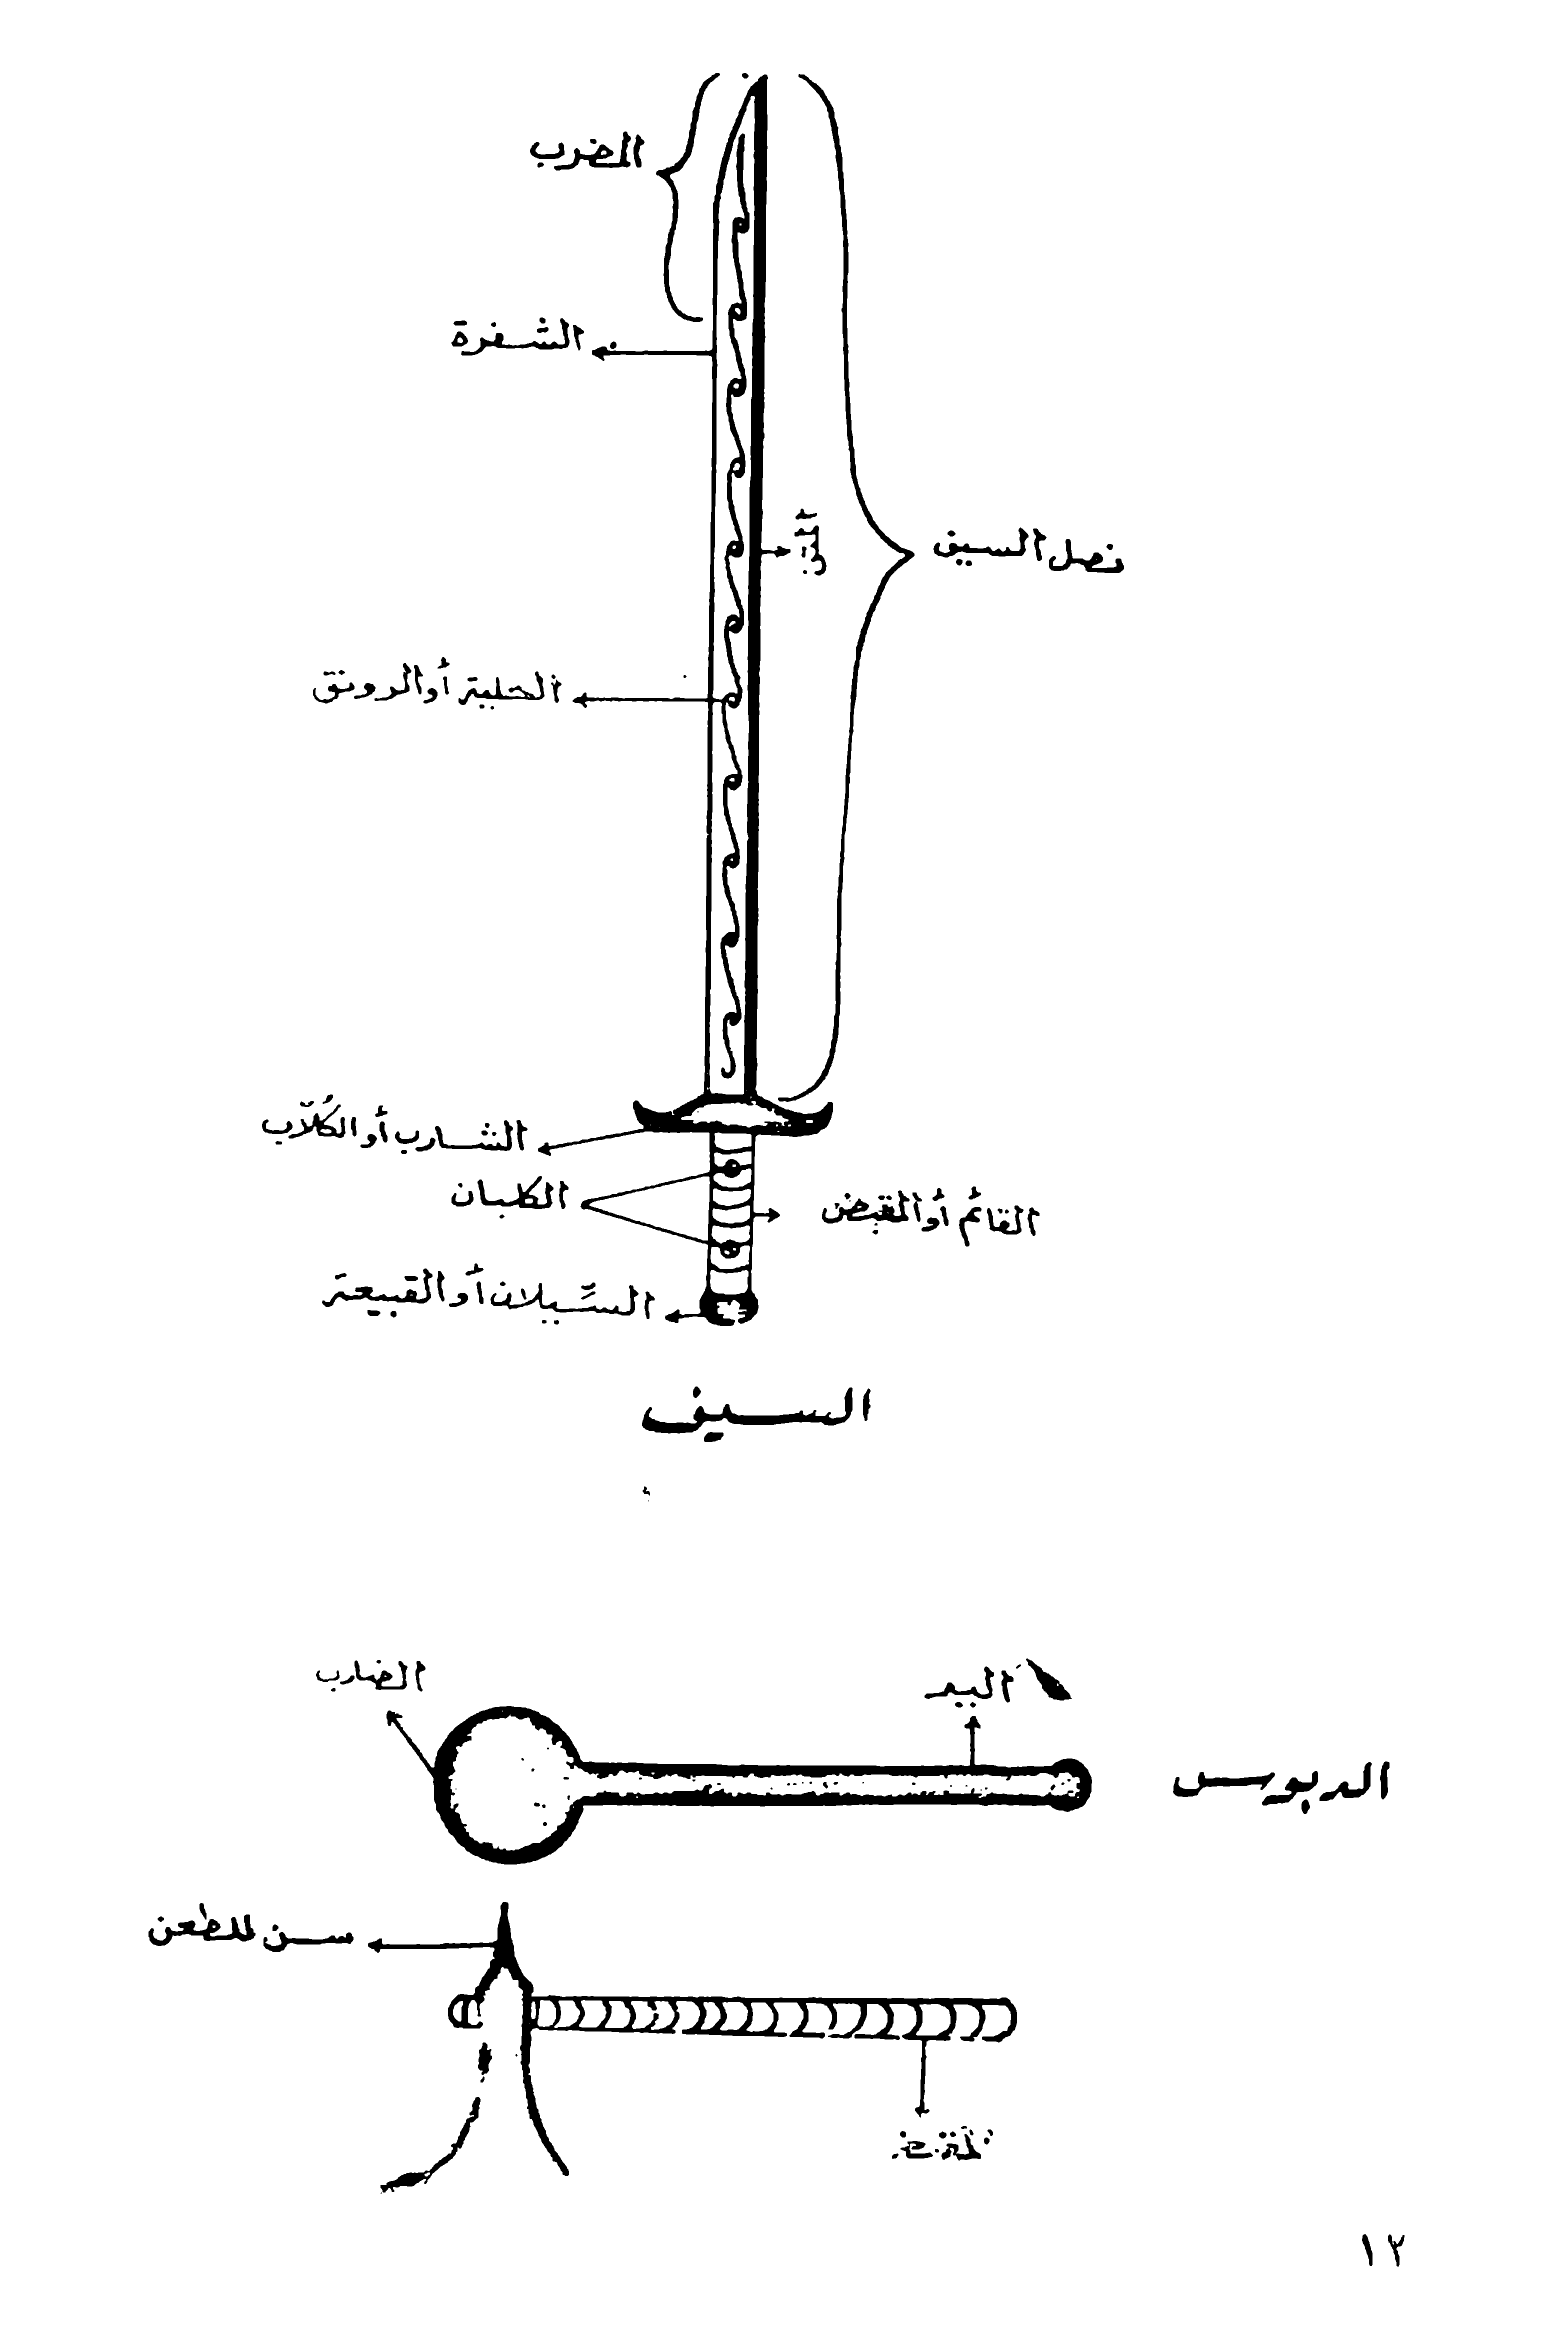 المضرب
الشفرة
المتن
نصل السيف
الحلية أو الرونق
الشارب أو الكُلّاب
الكلبان
القائم أو المقبض
السَّيلان أو القبيعة
السيف
الضارب
اليد
الدبوس
سن للطعن
١٢